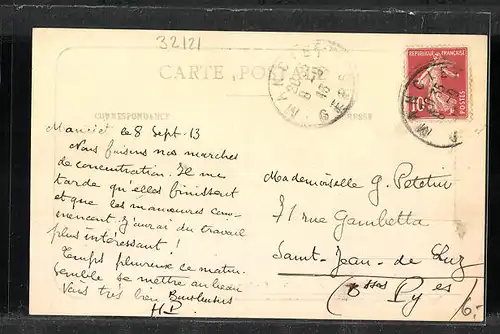 32121
CARTE POSTALE
REPUBLIQUE FRANÇAISE
10
POSTES
CORRESPONDANCE
ADRESSE
Manciet le 8 Sept. 13
Nous faisons nos marches
de concentration. Il me
tarde qu'elles finissent
et que les manœuvres com-
mencent. J'aurai du travail
plus intéressant !
Temps pluvieux ce matin.
Semble se mettre au beau
Vais très bien
HP
Mademoiselle G.
71 rue Gambetta
Saint-Jean-de Luz
(Bsses Pyes)
6.-